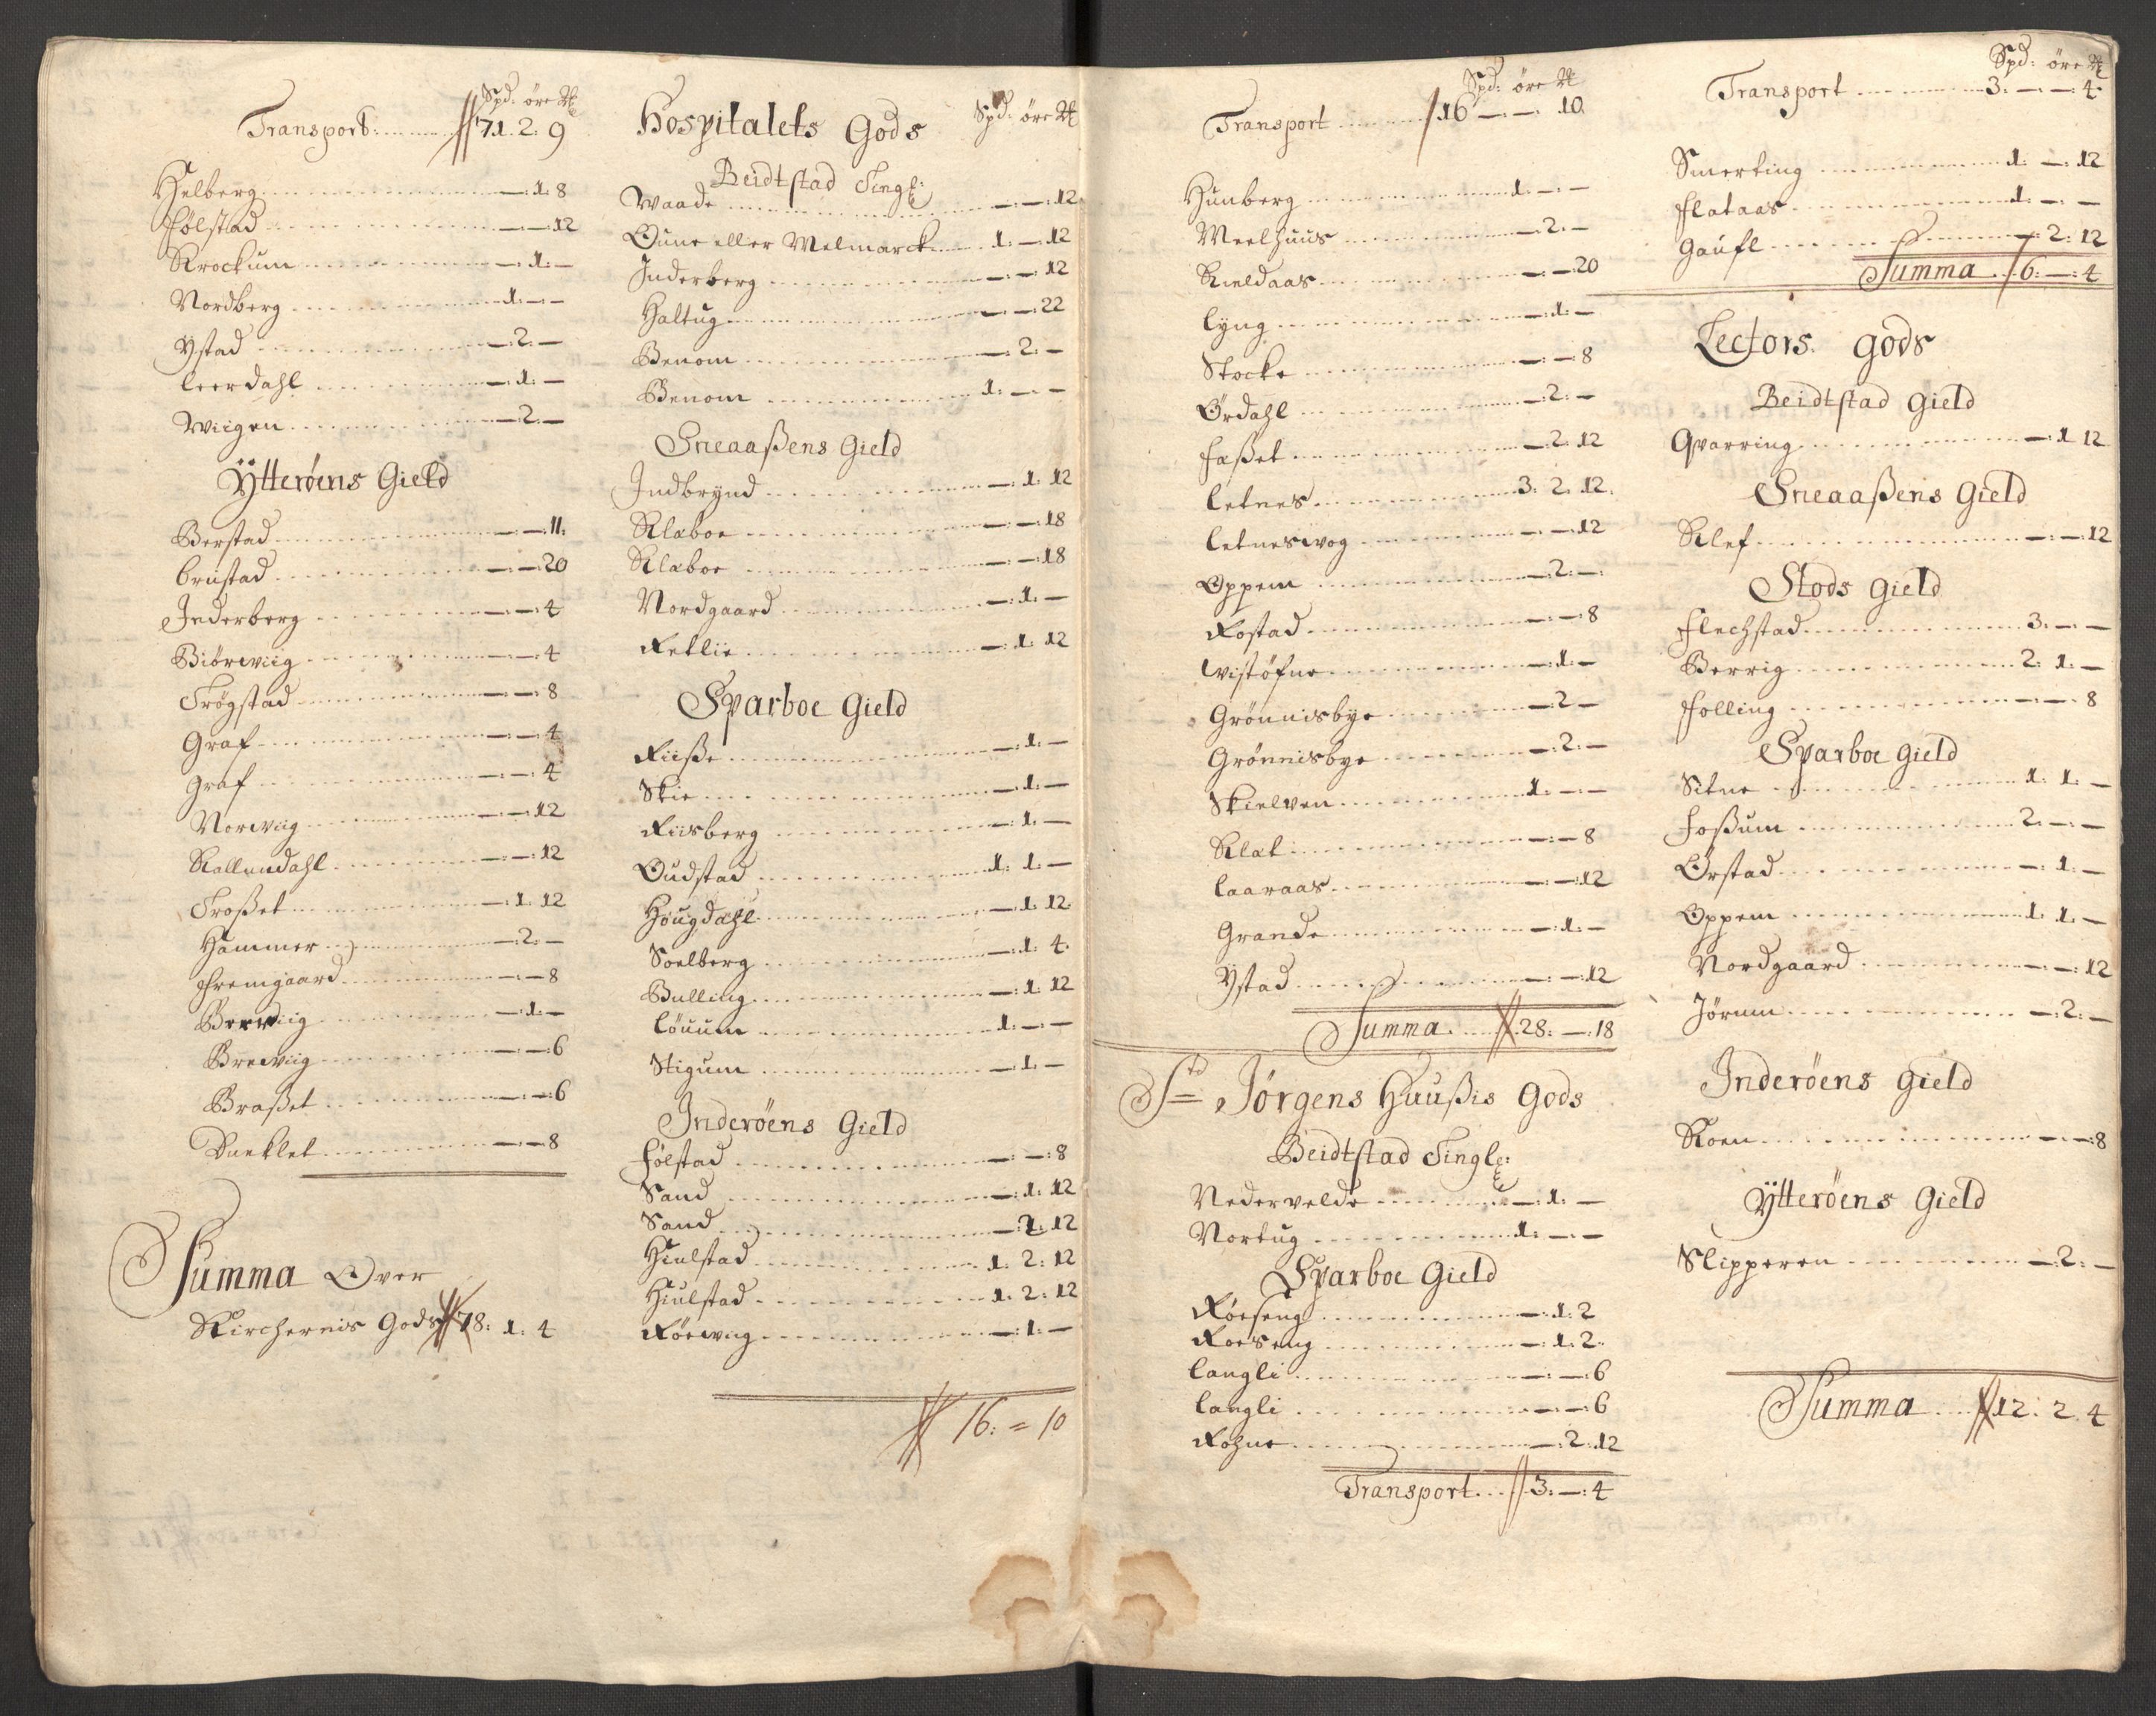 Spd: öre ℔
Transport: 71. 2: 9
Helberg —:1: 8
Fölstad —:—:12
Krockum —:1:—
Nordberg 1:—:—
Ystad —:2:—
Leerdahl —:1:—
Wiigen —:2:—
Ytteröens Gield
Berstad —:—:11:
Brustad —:—:20
Inderberg —:—:4
Biörwiig —:—:4
Trögstad —:—:8
Graf —:—:4
Graf —:—:4
Norwiig —:—:12
Kallumdahl —:—:12
Troßet —:1:12
Hammer —:2:—
Fremgaard —:—:8
Berviig —:1:—
Brewiig —:—:6
Braßet —:—:6
Dueklet —:—:8
Summa Over
Kirchernis Gods 78: 1: 4
Hospitalets Gods Spd: öre ℔
Beidtstad Tingl:
Waade —:—:12
Oune eller Melmarck 1:—:12
Inderberg —:—:12
Haltug —:—:22
Benom —:2:—
Benom 1:—:—
Sneaaßens Gield
Indbrynd —:1:12
Klæboe —:—:18
Klæboe —:—:18
Nordgaard —:1:—
Retlie —:1:12
Sparboe Gield
Riiße —:1:—
Skie —:1:—
Riisberg —:1:—
Oudstad 1: 1:—
Hougdahl —:1:12
Soelberg —:1: 4
Bulling —:1:12
Löuum 1:—:—
Stigum —:1:—
Inderöens Gield
Fölstad —:—:8
Sand —:1:12
Sand —:1:12
Hiulstad 1: 2:12
Hiulstad 1: 2:12
Röewiig —:1:—
16: = 10
Spd: öre ℔
Transport 16 —:— 10
Hunberg 1:—:—
Meelhuus —:2:—
Kieldaas —:—:20
Lyng —:1:—
Stocke —:—:8
Ördahl —:2:—
Faßet —:2:12
Letnes 3: 2:12
Letneswog —:—:12
Oppem —:2:—
Rostad —:—:8
Wistöfne —:1:—
Grönnisbye —:2:—
Grönnisbye —:2:—
Skielven 1:—:—
Klæt —:—:8
Laaraas —:—:12
Grande —:1:—
Ystad —:—:12
Summa 28:—:18
Std Jörgens Huußis Gods
Beidtstad Tingl:
Nedervelde —:1:—
Nortug 1:—:—
Sparboe Gield
Röeseng —:1: 2
Roeseng —:1: 2
Langli —:—:6
Langli —:—:6
Rohne —:2:12
Transport 3:—:4
Spd: öre ℔
Transport 3:—:—:4
Smerting 1:—:12
Flataas 1:—:—
Gaufl —:2:12
Summa 6:—:4
Lectors Gods
Beidtstad Gield
Qvarring —:1 12
Sneaaßens Gield
Klef —:—:12
Stods Gield
Flechstad 3:—:—
Berrig 2: 1:—
Fölling —:—:8
Sparboe Gield
Sitne 1: 1:—
Foßum 2:—:—
Örstad —:1:—
Oppem 1: 1:—
Nordgaard —:—:12
Jörum —:2:—
Inderöens Gield
Koen —:—:8
Ytteröens Gield
Slipperen —:2:—
Summa 12: 2 4